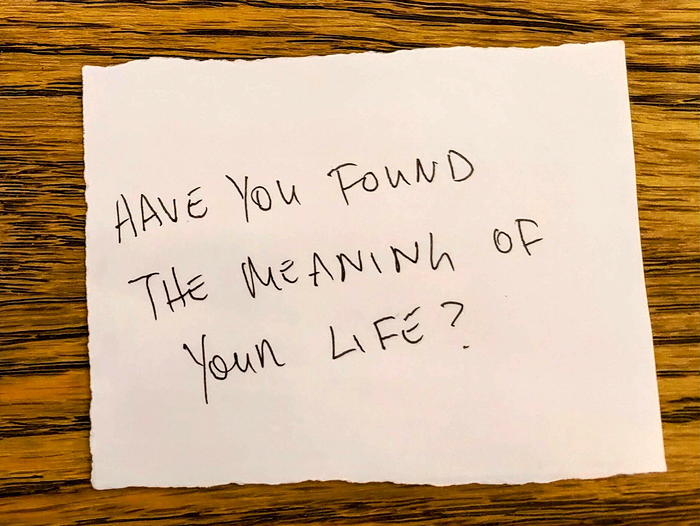 HAVE YOU FOUND
THE MEANING OF
YOUR LIFE?